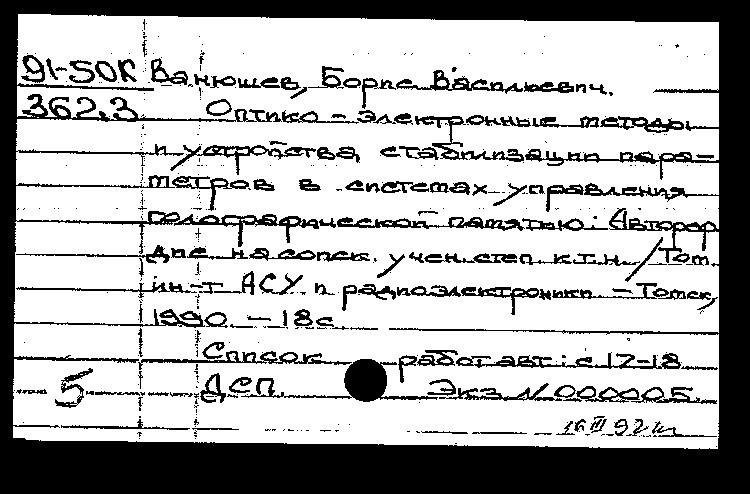 91-50К Ванюшев, Борис Васильевич.
362.3 Оптико - электронные методы
и устройства стабилизации пара-
метров в системах управления
голографической памятью: Автореф
дис. на соиск. учен. степ к.т.н. / Том.
ин-т АСУ и радиоэлектроники. - Томск,
1990. - 18с.
Список работ авт: с 17-18
5 ДСП. Экз N 000005.
16 III 92